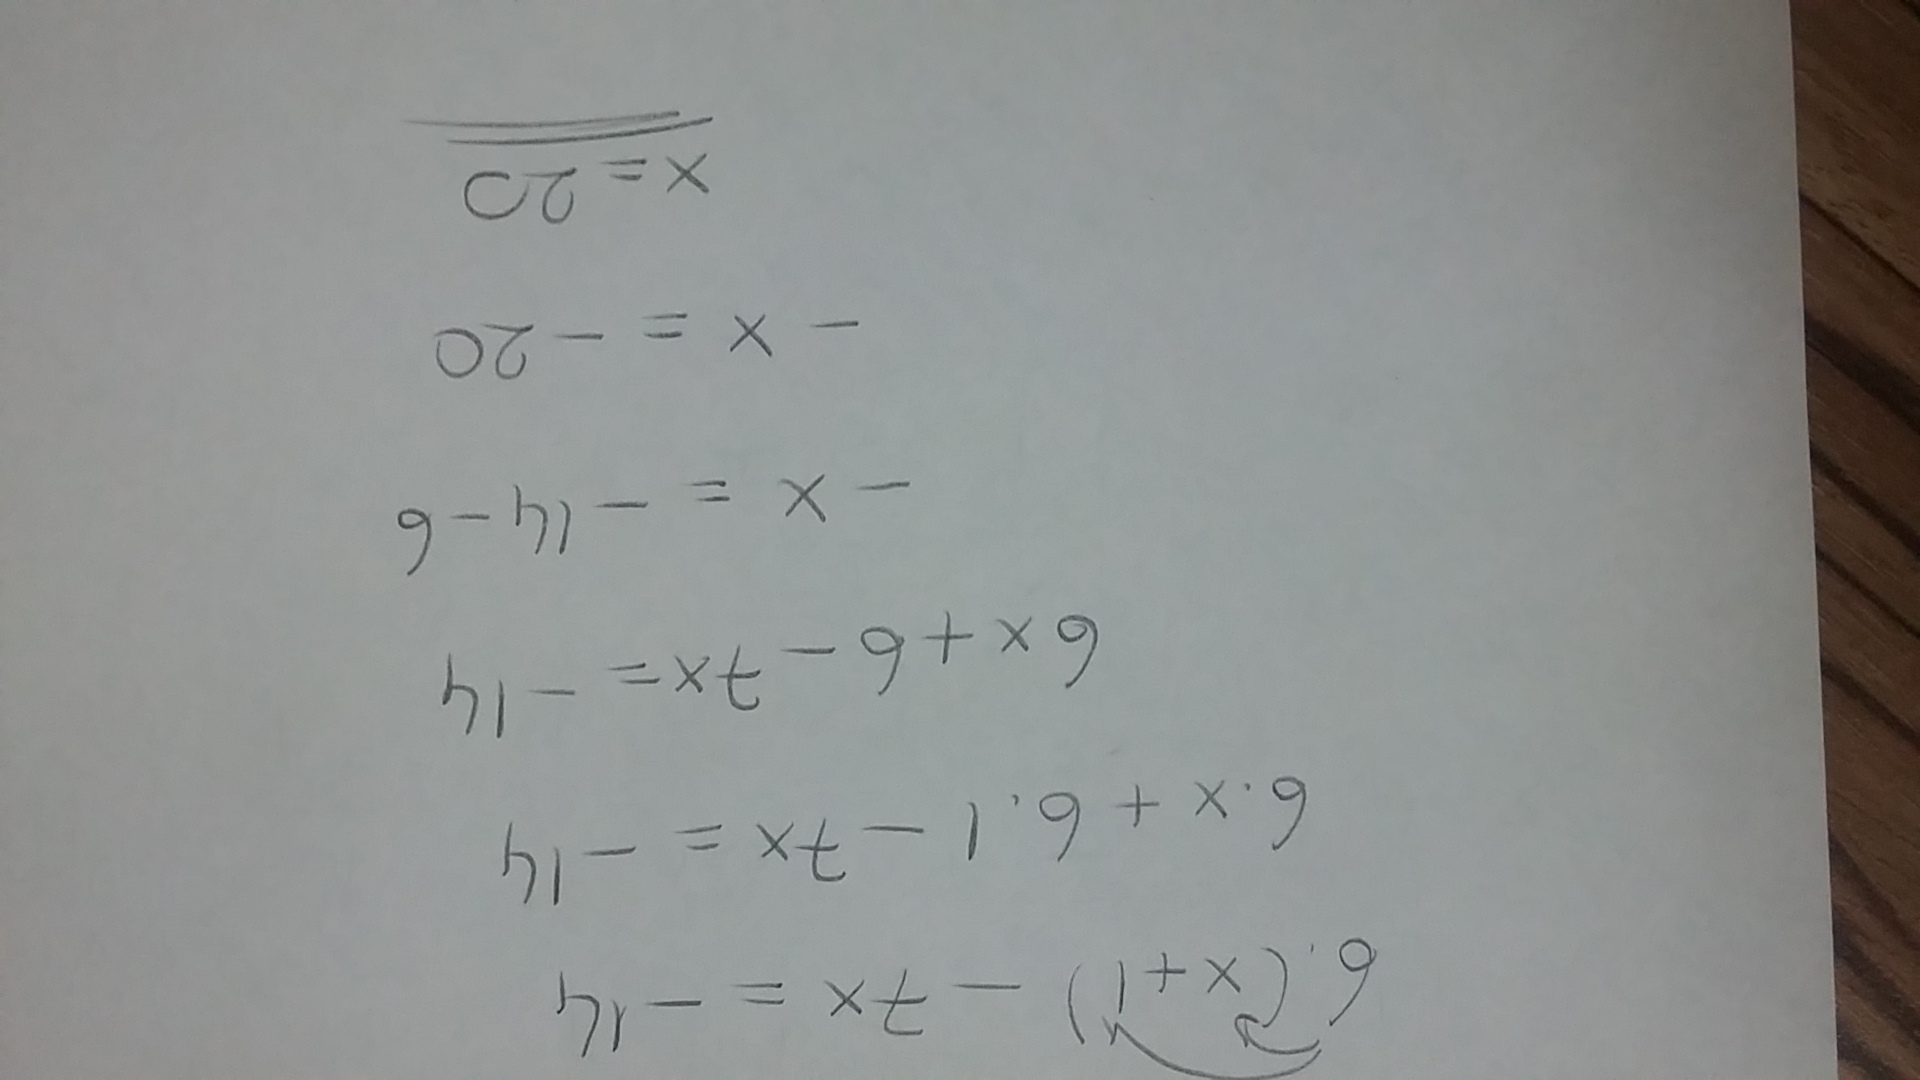 6.(x+1) - 7x = -14
6.x + 6.1 - 7x = -14
6x + 6 - 7x = -14
- x = -14 - 6
- x = -20
x = 20